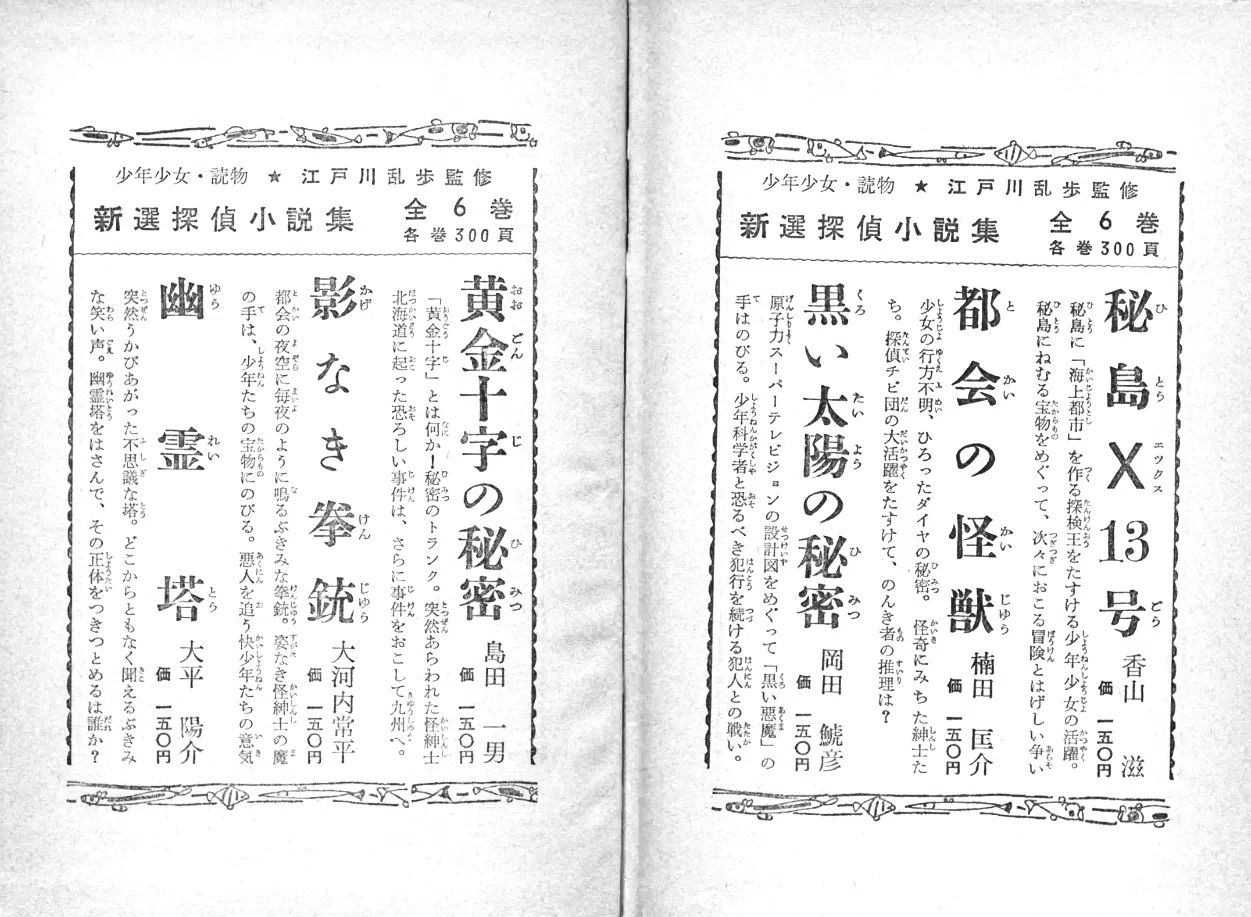 少年少女・読物 ★ 江戸川乱歩監修
新選探偵小説集
全6巻
各巻300頁
秘島X13号
香山 滋
価 一五〇円
秘島に「海上都市」を作る探検王をたすける少年少女の活躍。
秘島にねむる宝物をめぐって、次々におこる冒険とはげしい争い
都会の怪獣
楠田 匡介
価 一五〇円
少女の行方不明、ひろったダイヤの秘密。怪奇にみちた紳士た
ち。探偵チビ団の大活躍をたすけて、のんき者の推理は?
黒い太陽の秘密
岡田 鯱彦
価 一五〇円
原子力スーパーテレビジョンの設計図をめぐって「黒い悪魔」の
手はのびる。少年科学者と恐るべき犯行を続ける犯人との戦い。
少年少女・読物 ★ 江戸川乱歩監修
新選探偵小説集
全6巻
各巻300頁
黄金十字の秘密
島田 一男
価 一五〇円
「黄金十字」とは何か!秘密のトランク。突然あらわれた怪紳士
北海道に起った恐ろしい事件は、さらに事件をおこして九州へ。
影なき拳銃
大河内常平
価 一五〇円
都会の夜空に毎夜のように鳴るぶきみな拳銃。姿なき怪紳士の魔
の手は、少年たちの宝物にのびる。悪人を追う快少年たちの意気
幽霊塔
大平 陽介
価 一五〇円
突然うかびあがった不思議な塔。どこからともなく聞えるぶきみ
な笑い声。幽霊塔をはさんで、その正体をつきつとめるは誰か?